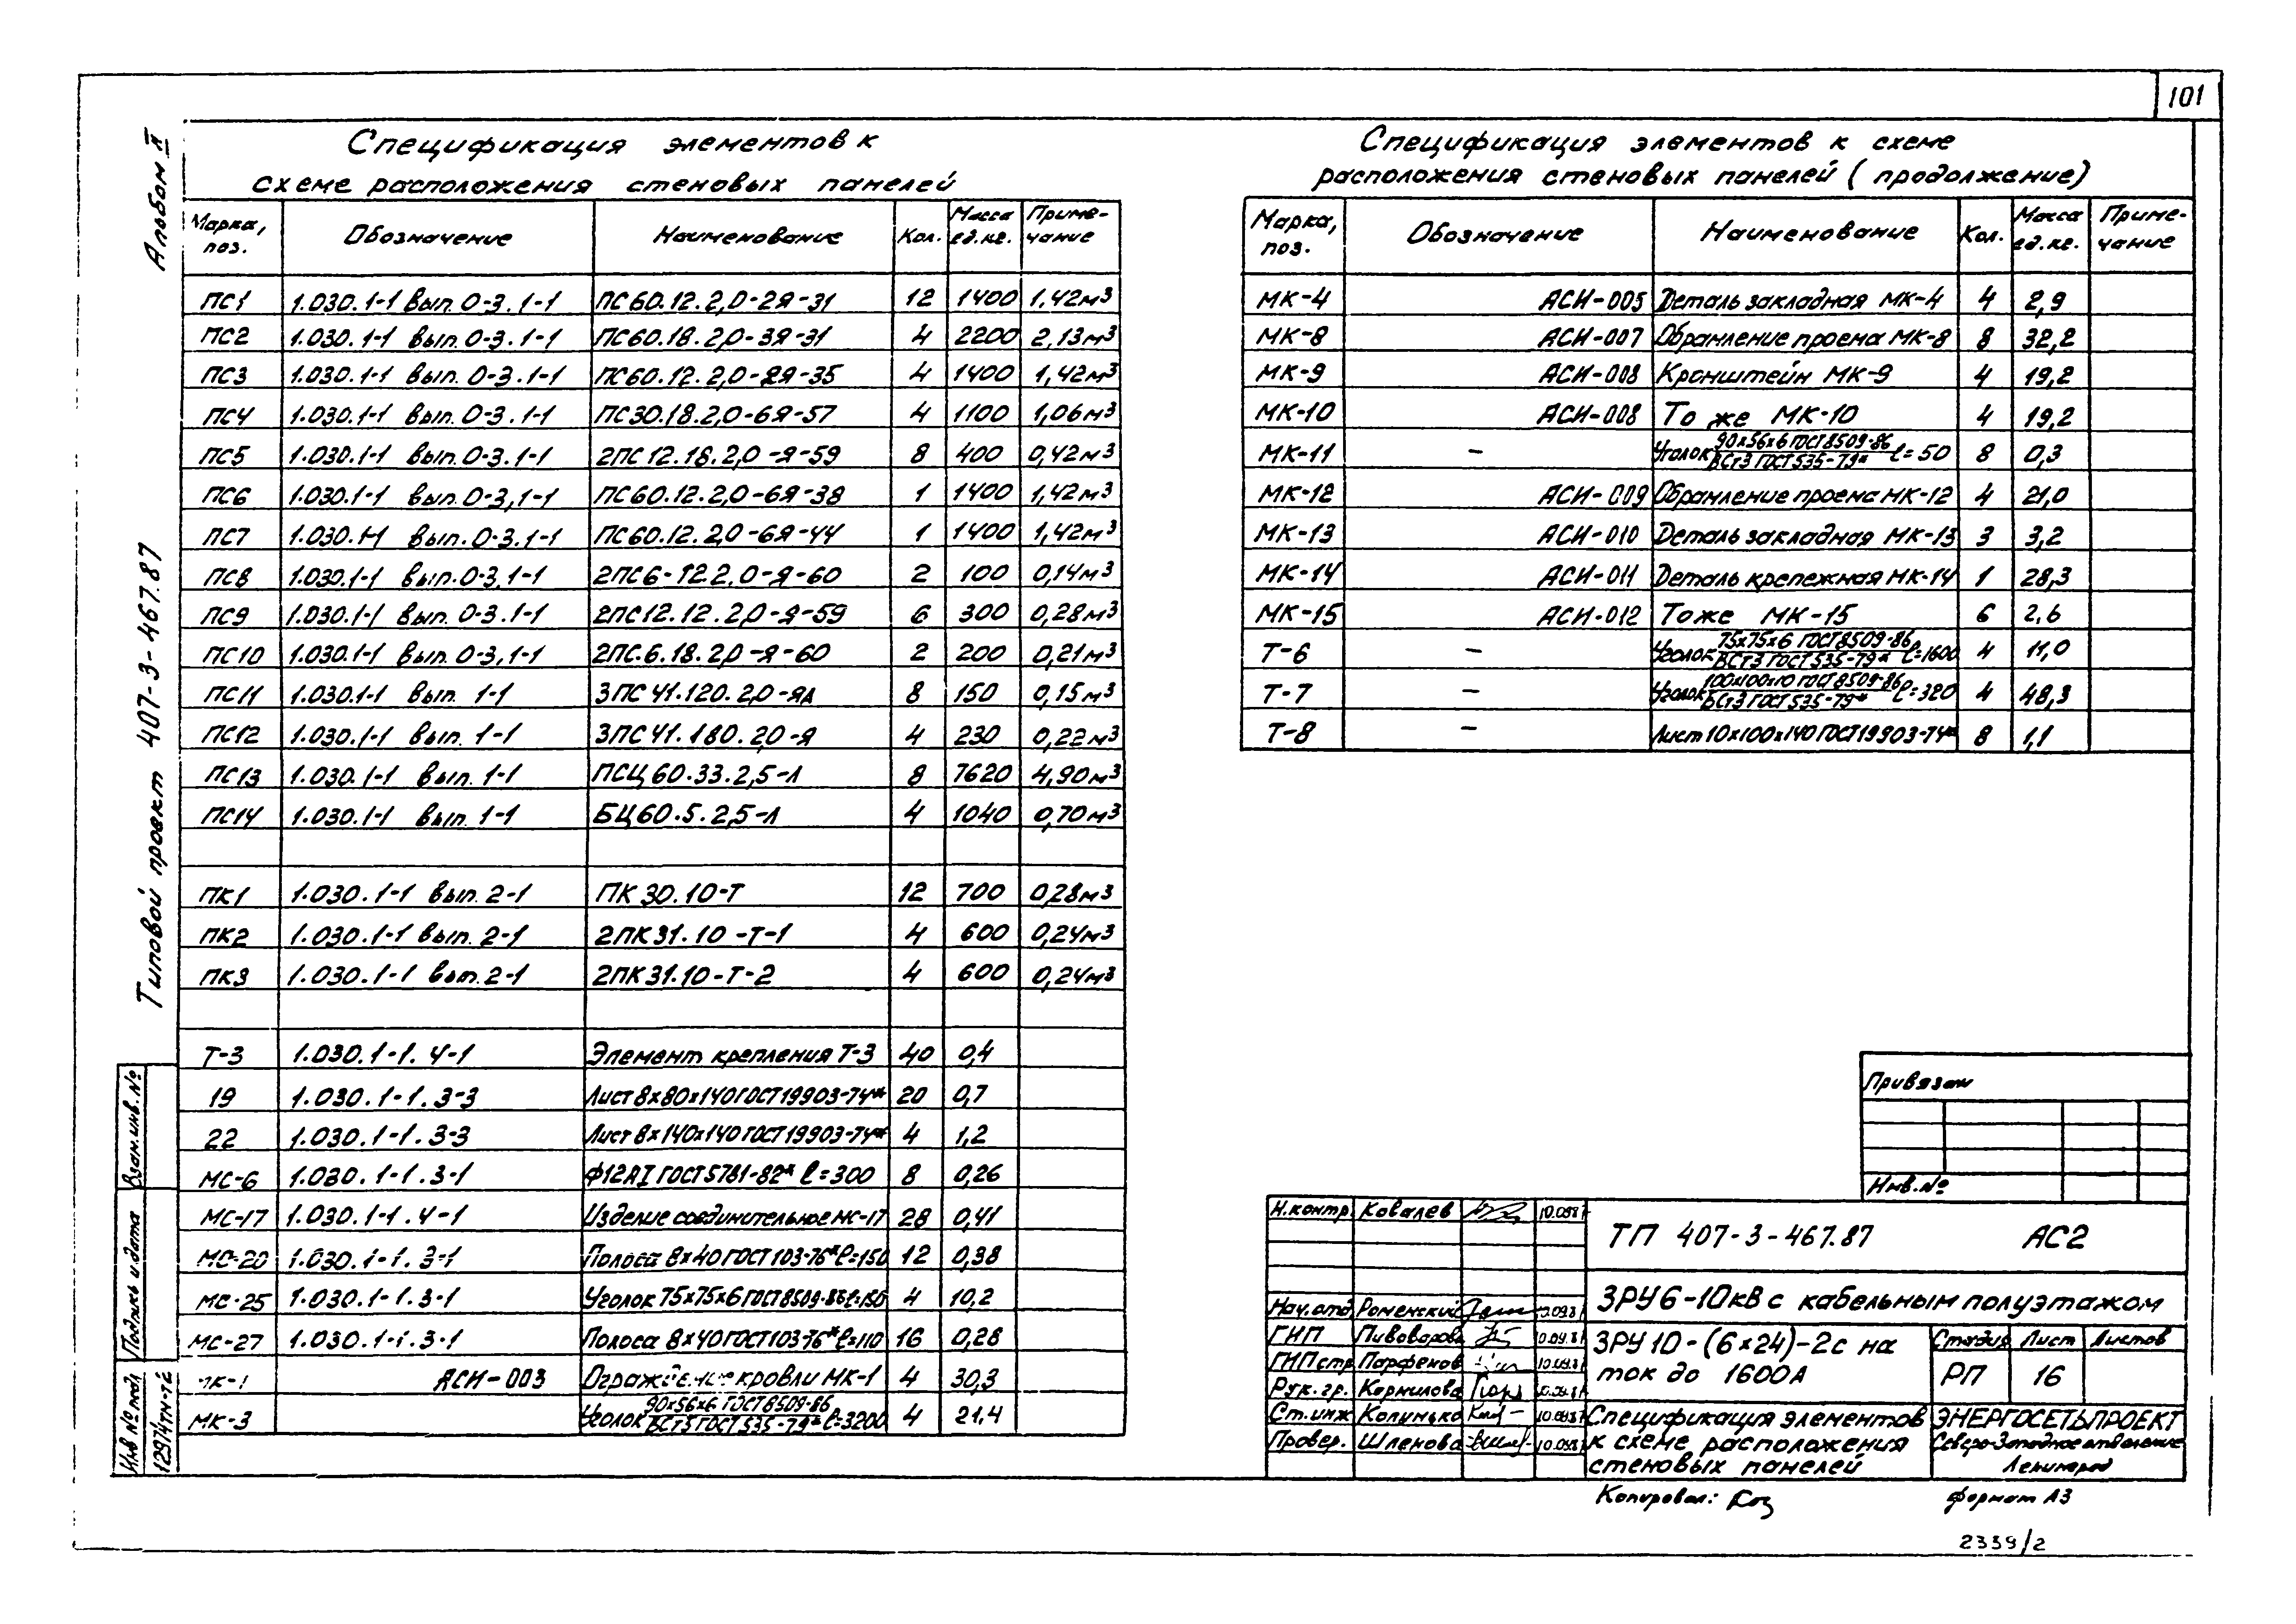 101
Альбом II
Типовой проект 407-3-467.87
Спецификация элементов к
схеме расположения стеновых панелей
Марка, поз. Обозначение Наименование Кол. Масса ед.кг. Приме-чание
ПС1 1.030.1-1 вып. 0-3.1-1 ПС60.12.2,0-2Я-31 12 1400 1,42м³
ПС2 1.030.1-1 вып. 0-3.1-1 ПС60.18.2,0-3Я-31 4 2200 2,13м³
ПС3 1.030.1-1 вып. 0-3.1-1 ПС60.12.2,0-2Я-35 4 1400 1,42м³
ПС4 1.030.1-1 вып. 0-3.1-1 ПС30.18.2,0-6Я-57 4 1100 1,06м³
ПС5 1.030.1-1 вып. 0-3.1-1 2ПС12.18.2,0-Я-59 8 400 0,42м³
ПС6 1.030.1-1 вып. 0-3,1-1 ПС60.12.2,0-6Я-38 1 1400 1,42м³
ПС7 1.030.1-1 вып. 0-3.1-1 ПС60.12.2,0-6Я-44 1 1400 1,42м³
ПС8 1.030.1-1 вып. 0-3,1-1 2ПС6-12.2,0-Я-60 2 100 0,14м³
ПС9 1.030.1-1 вып. 0-3.1-1 2ПС12.12.2,0-Я-59 6 300 0,28м³
ПС10 1.030.1-1 вып. 0-3,1-1 2ПС.6.18.2,0-Я-60 2 200 0,21м³
ПС11 1.030.1-1 вып. 1-1 3ПС41.120.2,0-ЯЛ 8 150 0,15м³
ПС12 1.030.1-1 вып. 1-1 3ПС41.180.2,0-Я 4 230 0,22м³
ПС13 1.030.1-1 вып. 1-1 ПСЦ60.33.2,5-Л 8 7620 4,90м³
ПС14 1.030.1-1 вып. 1-1 БЦ60.5.2,5-Л 4 1040 0,70м³
ПК1 1.030.1-1 вып. 2-1 ПК30.10-Т 12 700 0,28м³
ПК2 1.030.1-1 вып. 2-1 2ПК31.10-Т-1 4 600 0,24м³
ПК3 1.030.1-1 вып. 2-1 2ПК31.10-Т-2 4 600 0,24м³
Т-3 1.030.1-1. 4-1 Элемент крепления Т-3 40 0,4
19 1.030.1-1.3-3 Лист 8х80х140 ГОСТ19903-74* 20 0,7
22 1.030.1-1.3-3 Лист 8х140х140 ГОСТ19903-74* 4 1,2
МС-6 1.030.1-1.3-1 Ф12АI ГОСТ5781-82* ℓ=300 8 0,26
МС-17 1.030.1-1.4-1 Изделие соединительное МС-17 28 0,41
МС-20 1.030.1-1.3-1 Полоса 8х40 ГОСТ103-76* ℓ=150 12 0,38
МС-25 1.030.1-1.3-1 Уголок 75х75х6 ГОСТ8509-86 ℓ=150 4 10,2
МС-27 1.030.1-1.3-1 Полоса 8х40 ГОСТ103-76* ℓ=110 16 0,28
МК-1 АСИ-003 Ограждение кровли МК-1 4 30,3
МК-3 Уголок 90х56х6 ГОСТ8509-86 / ВСт3 ГОСТ535-79* ℓ=3200 4 21,4
Спецификация элементов к схеме
расположения стеновых панелей (продолжение)
Марка, поз. Обозначение Наименование Кол. Масса ед.кг. Приме-чание
МК-4 АСИ-005 Деталь закладная МК-4 4 2,9
МК-8 АСИ-007 Обрамление проема МК-8 8 32,2
МК-9 АСИ-008 Кронштейн МК-9 4 19,2
МК-10 АСИ-008 То же МК-10 4 19,2
МК-11 - Уголок 90х56х6 ГОСТ8509-86 / ВСт3 ГОСТ535-79* ℓ=50 8 0,3
МК-12 АСИ-009 Обрамление проема МК-12 4 21,0
МК-13 АСИ-010 Деталь закладная МК-13 3 3,2
МК-14 АСИ-011 Деталь крепежная МК-14 1 28,3
МК-15 АСИ-012 То же МК-15 6 2,6
Т-6 - Уголок 75х75х6 ГОСТ8509-86 / ВСт3 ГОСТ535-79* ℓ=1600 4 11,0
Т-7 - Уголок 100х100х10 ГОСТ8509-86 / ВСт3 ГОСТ535-79* ℓ=320 4 48,3
Т-8 - Лист 10х100х140 ГОСТ19903-74* 8 1,1
Привязан
Инв.№
Н.контр. Ковалев 10.09.87
Нач.отд Роменский 10.09.87
ГИП Пивоварова 10.09.87
ГИПстр Парфенов 10.09.87
Рук.гр. Корнилова 10.09.87
Ст.инж Колинько 10.09.87
Провер. Шленова 10.09.87
ТП 407-3-467.87 АС2
ЗРУ6-10кВ с кабельным полуэтажом
ЗРУ10-(6х24)-2с на
ток до 1600А
Стадия Лист Листов
РП 16
Спецификация элементов
к схеме расположения
стеновых панелей
ЭНЕРГОСЕТЬПРОЕКТ
Северо-Западное отделение
Ленинград
Копировал: Формат А3
2339/2
Взам.инв.№
Подпись и дата
Инв.№ подл
12974тм-т2